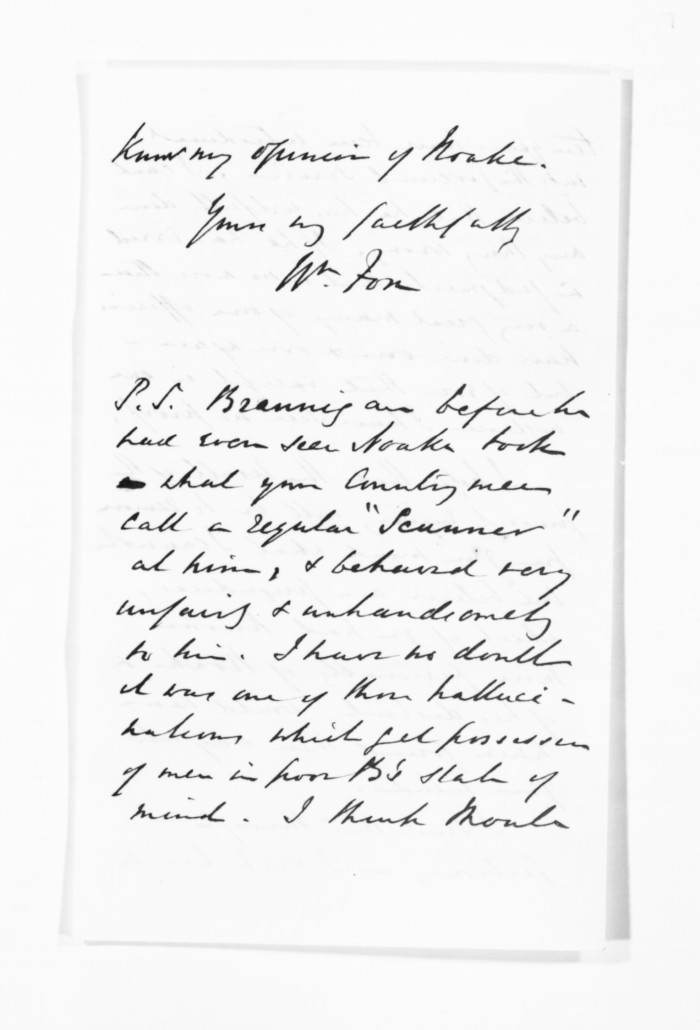 Know my opinion of Noake.
Yours very faithfully
Wm. Fox
P.S. Brannigan before he
had even seen Noake took
what your Countrymen
call a regular "Scunner"
at him, & behaved very
unfairly & unhandsomely
to him. I have no doubt
it was one of those halluci-
nations which get possession
of men in poor B's state of
mind. I think Noake